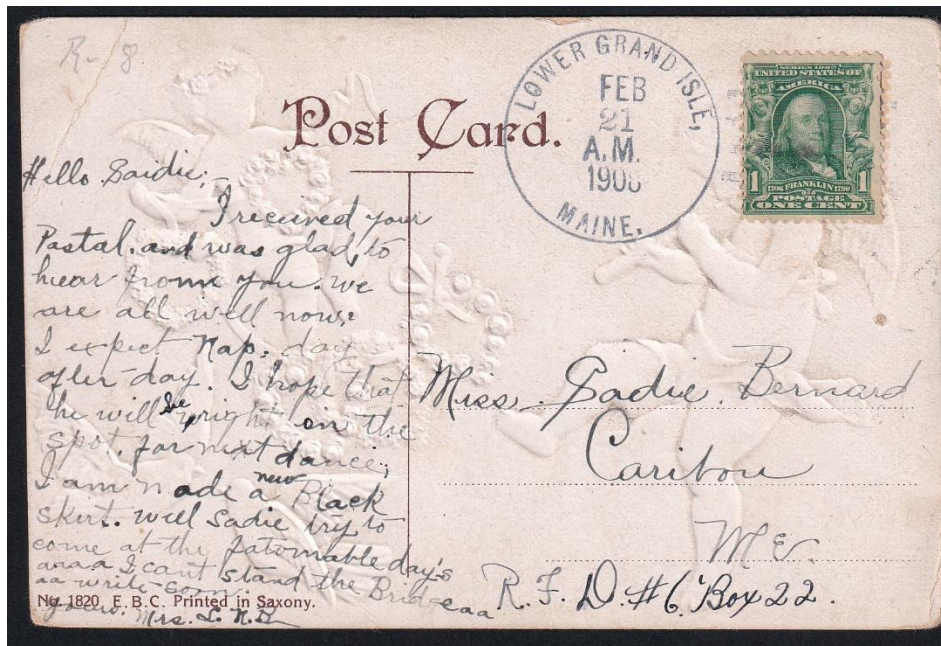 R-8
Post Card.
LOWER GRAND ISLE,
FEB
21
A.M.
1908
MAINE.
SERIES 1902
UNITED STATES OF
AMERICA
1 1706 FRANKLIN 1790 1
POSTAGE
ONE CENT
Hello Saidie;-
I received your
Postal. and was glad, to
hear from you. we
are all well now;
I expect Nap; day
after-day. I hope that
he will be wright on the
spot. for next dance;
I am made a new Black
skirt. will Sadie try to
come at the day's
I cant stand the
write-soon.
No. 1820 E. B. C. Printed in Saxony.
yours, Mrs. L. N. B
Miss. Sadie. Bernard
Caribou
Me.
R. F. D. #6. Box 22.